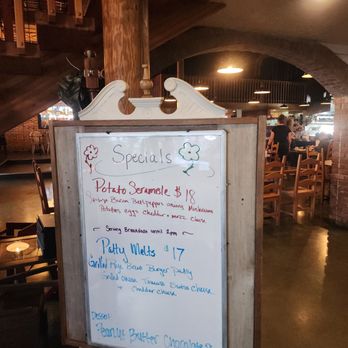 Specials
Potato Scramble $18
Bacon Bell peppers onions Mushrooms
Potatoes eggs cheddar + mozz cheese
Serving Breakfast until 2pm
Patty Melts $17
Grilled Rye Bread Burger Patty
Grilled onion Tomato Swiss Cheese
+ cheddar cheese
Dessert
Peanut Butter Chocolate